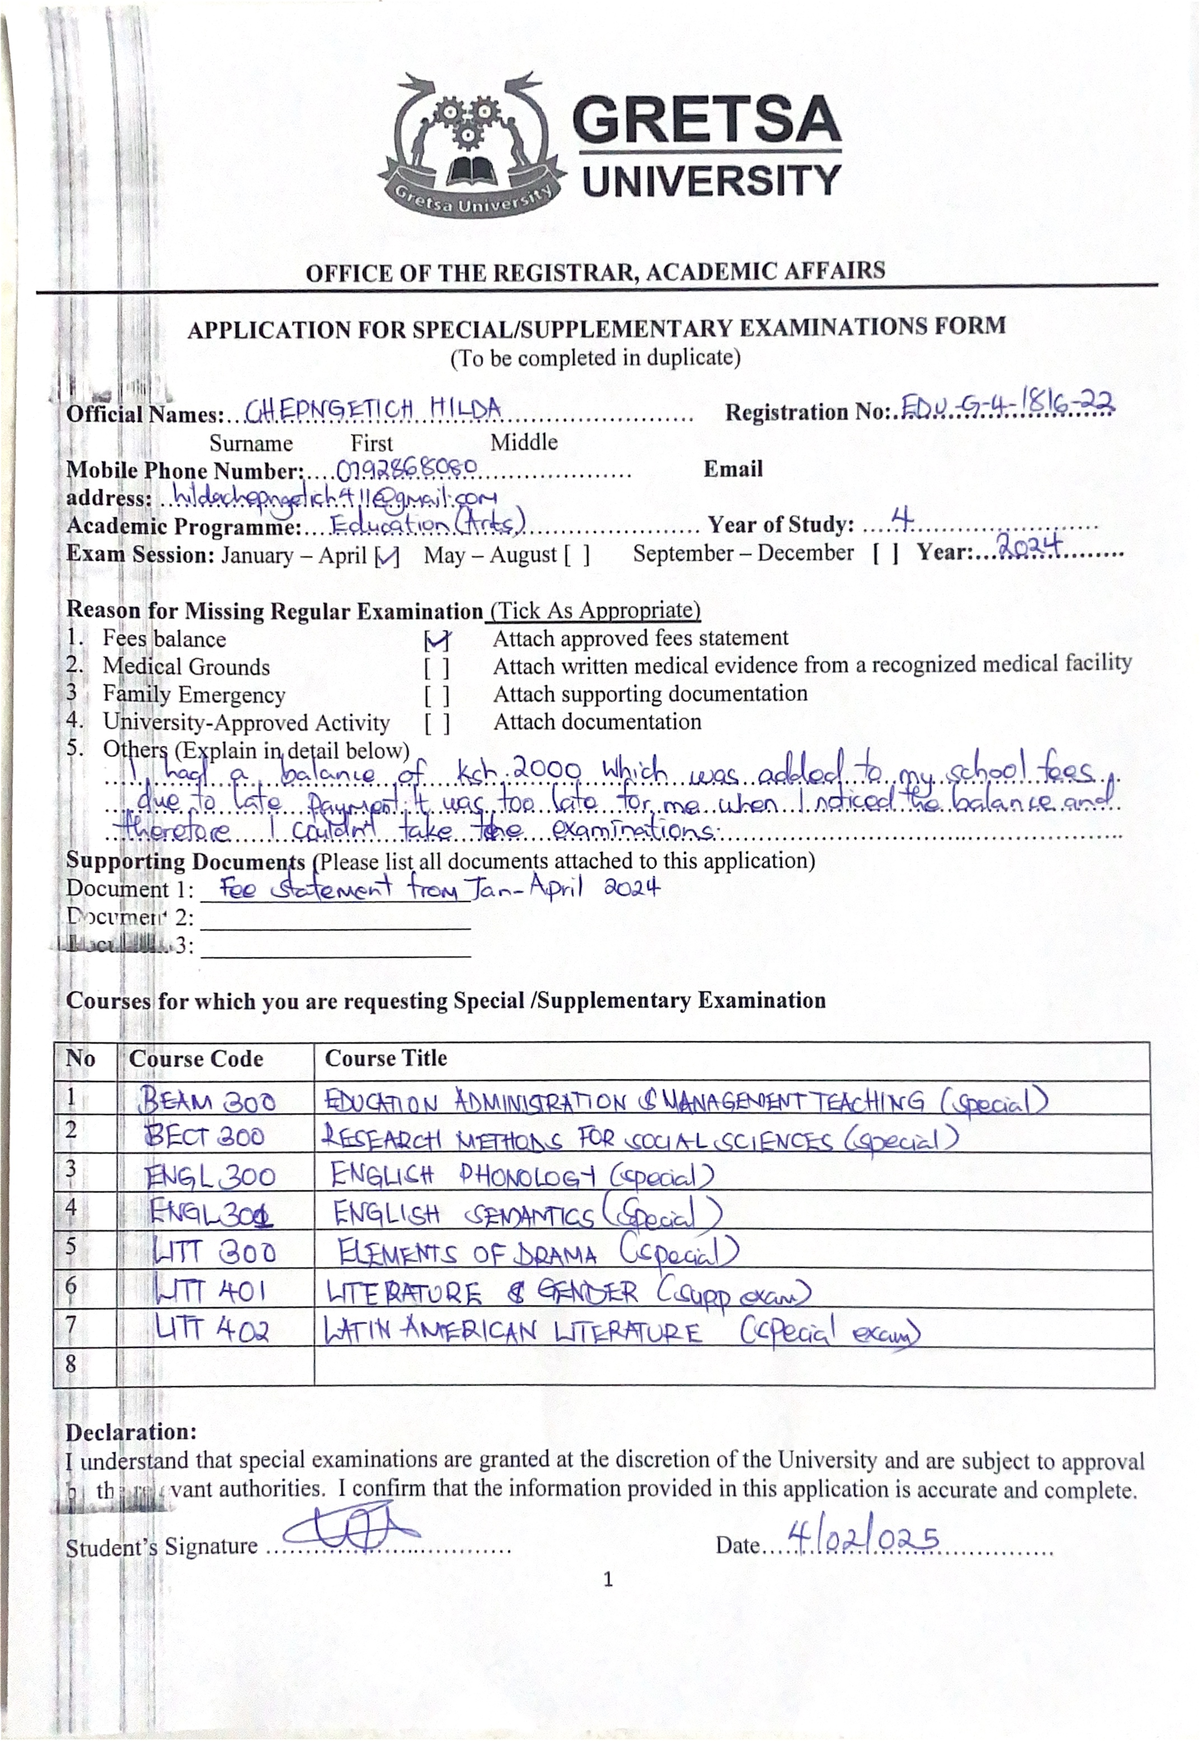 Gretsa University
GRETSA
UNIVERSITY
OFFICE OF THE REGISTRAR, ACADEMIC AFFAIRS
APPLICATION FOR SPECIAL/SUPPLEMENTARY EXAMINATIONS FORM
(To be completed in duplicate)
Official Names:...CHEPNGETICH HILDA............ Registration No:..EDU-G-4-1816-22
Surname First Middle
Mobile Phone Number:....0792868080............ Email
address: ..hildachepngetich411@gmail.com
Academic Programme:....Education (Arts)............ Year of Study: ....4............
Exam Session: January – April [✓] May – August [ ] September – December [ ] Year:...2024.........
Reason for Missing Regular Examination (Tick As Appropriate)
1. Fees balance [✓] Attach approved fees statement
2. Medical Grounds [ ] Attach written medical evidence from a recognized medical facility
3 Family Emergency [ ] Attach supporting documentation
4. University-Approved Activity [ ] Attach documentation
5. Others (Explain in detail below)
I had a balance of Ksh 2000 which was added to my school fees
due to late payment. It was too late for me when I noticed the balance and
therefore I couldn't take the examinations.
Supporting Documents (Please list all documents attached to this application)
Document 1: Fee statement from Jan-April 2024
Document 2:
3:
Courses for which you are requesting Special /Supplementary Examination
No Course Code Course Title
1 BEAM 300 EDUCATION ADMINISTRATION & MANAGEMENT TEACHING (special)
2 BECT 300 RESEARCH METHODS FOR SOCIAL SCIENCES (special)
3 ENGL 300 ENGLISH PHONOLOGY (special)
4 ENGL 301 ENGLISH SEMANTICS (special)
5 LITT 300 ELEMENTS OF DRAMA (special)
6 LITT 401 LITERATURE & GENDER (supp exam)
7 LITT 402 LATIN AMERICAN LITERATURE (special exam)
8
Declaration:
I understand that special examinations are granted at the discretion of the University and are subject to approval
by the relevant authorities. I confirm that the information provided in this application is accurate and complete.
Student's Signature ............ Date....4/02/025............
1